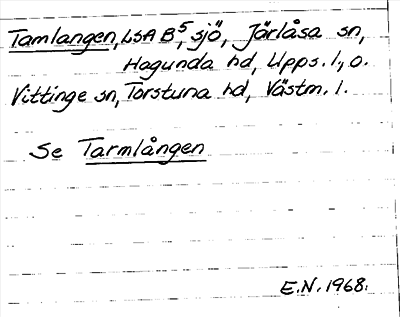 Tamlangen, LSA B⁵, sjö, Järlåsa sn,
Hagunda hd, Upps. l., o.
Vittinge sn, Torstuna hd, Västm. l.
Se Tarmlången
E.N. 1968.